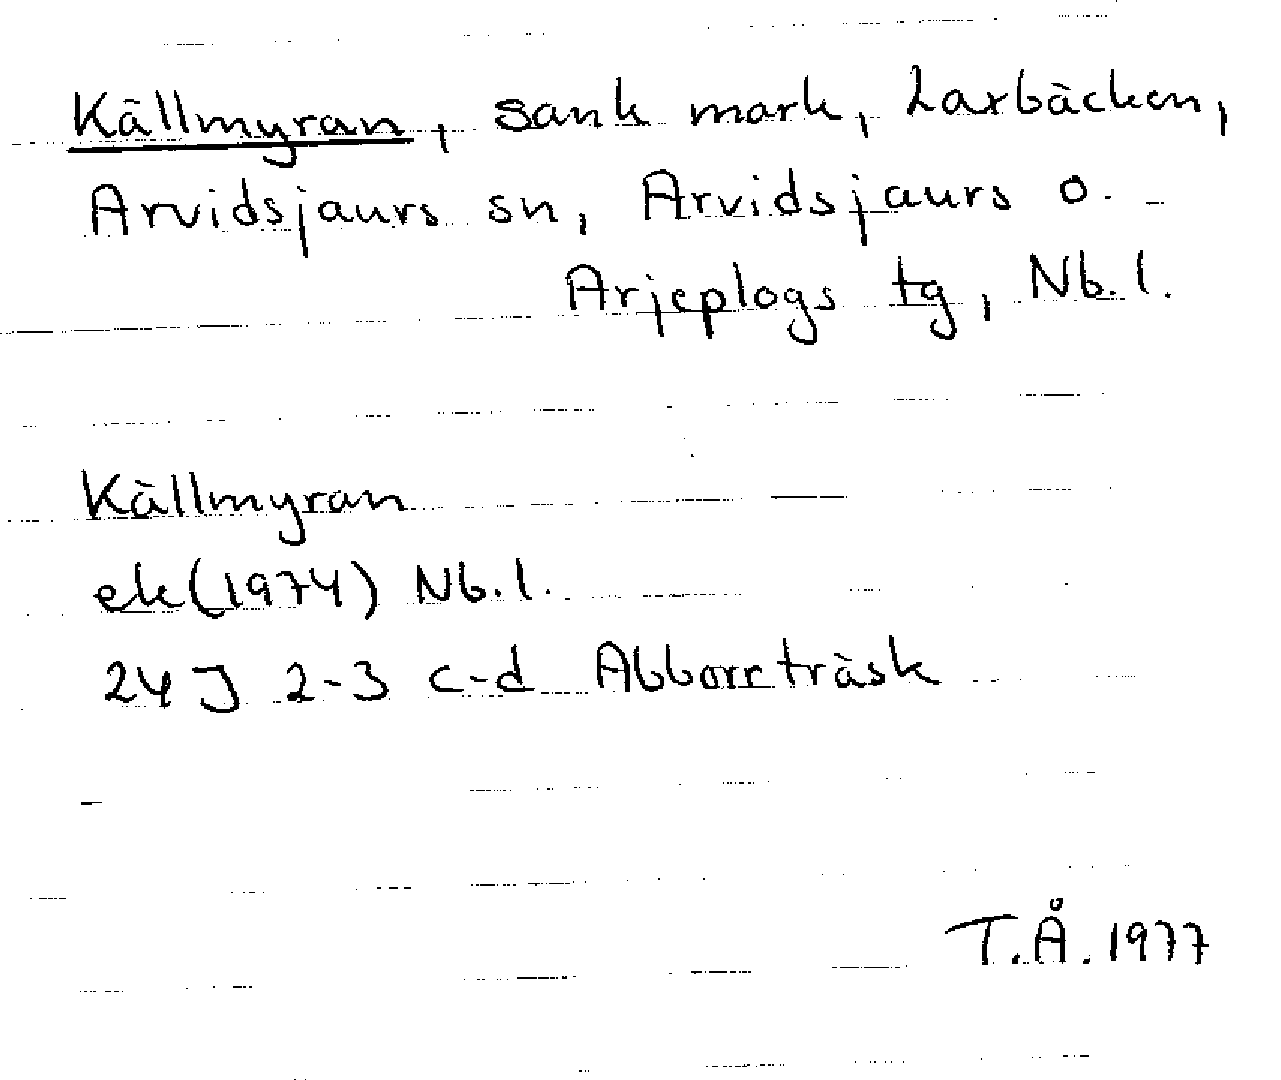 Källmyran, sank mark, Laxbäcken,
Arvidsjaurs sn, Arvidsjaurs o.
Arjeplogs tg, Nb.l.
Källmyran
ek(1974) Nb.l.
24J 2-3 c-d Abborrträsk
T.Å. 1977